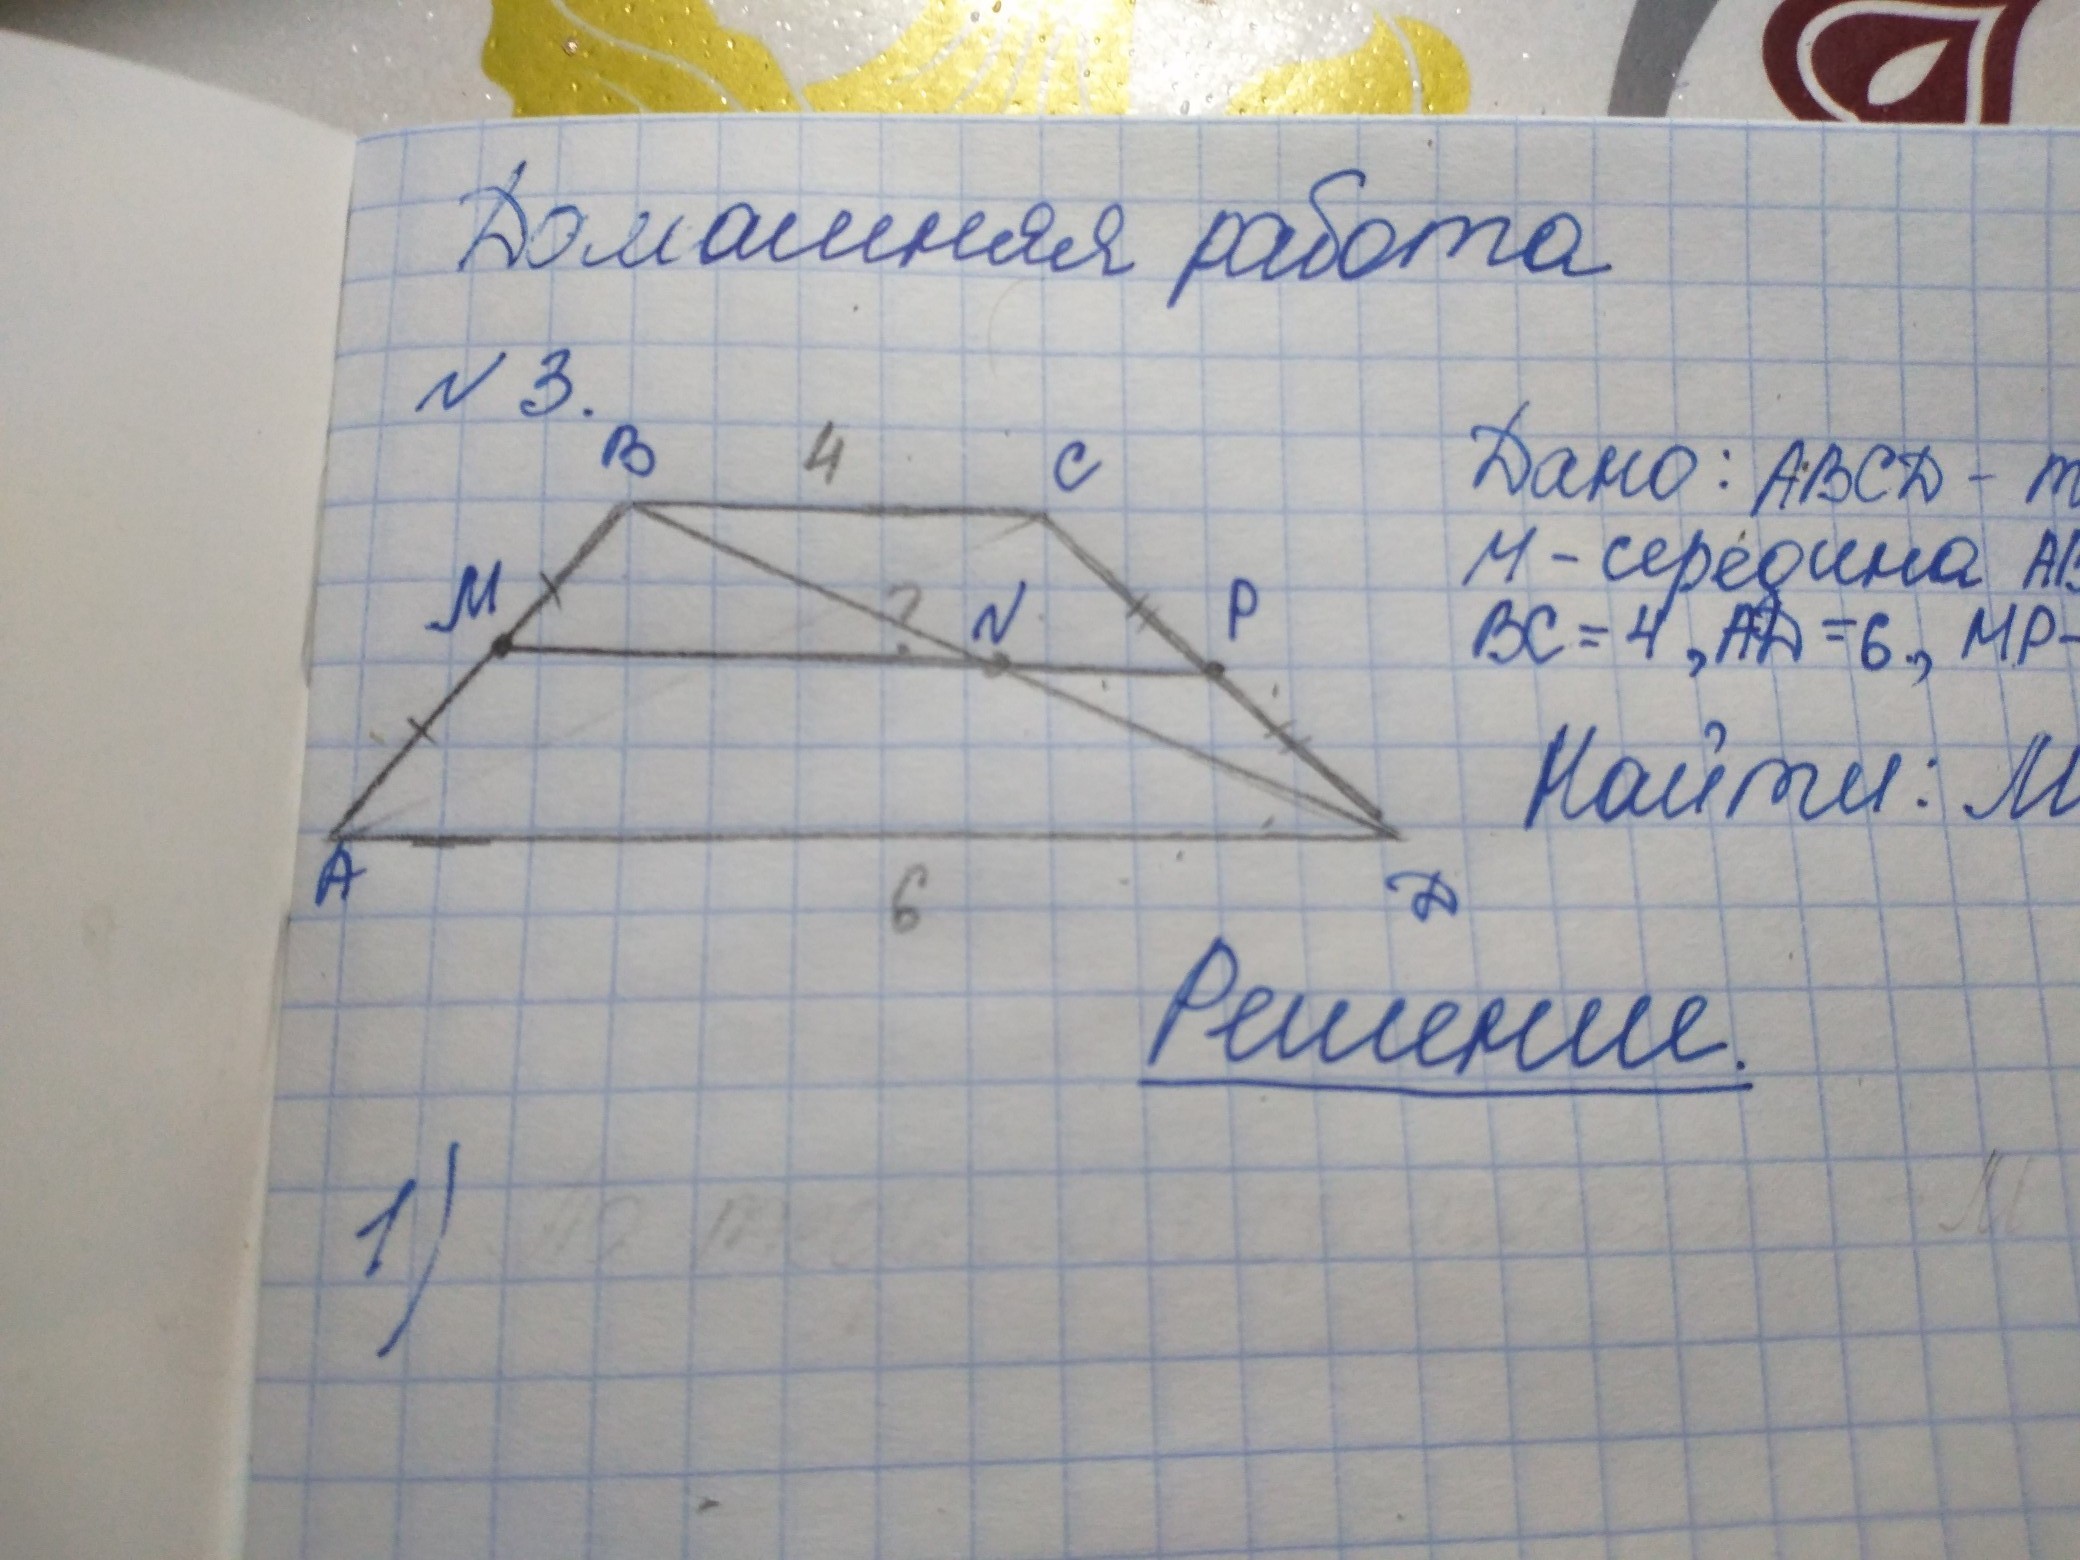 Домашняя работа
N 3.
B 4 C
M ? N P
A 6 D
Дано: ABCD - т
M - середина AB
BC = 4, AD = 6, MP -
Найти: M
Решение.
1)
M